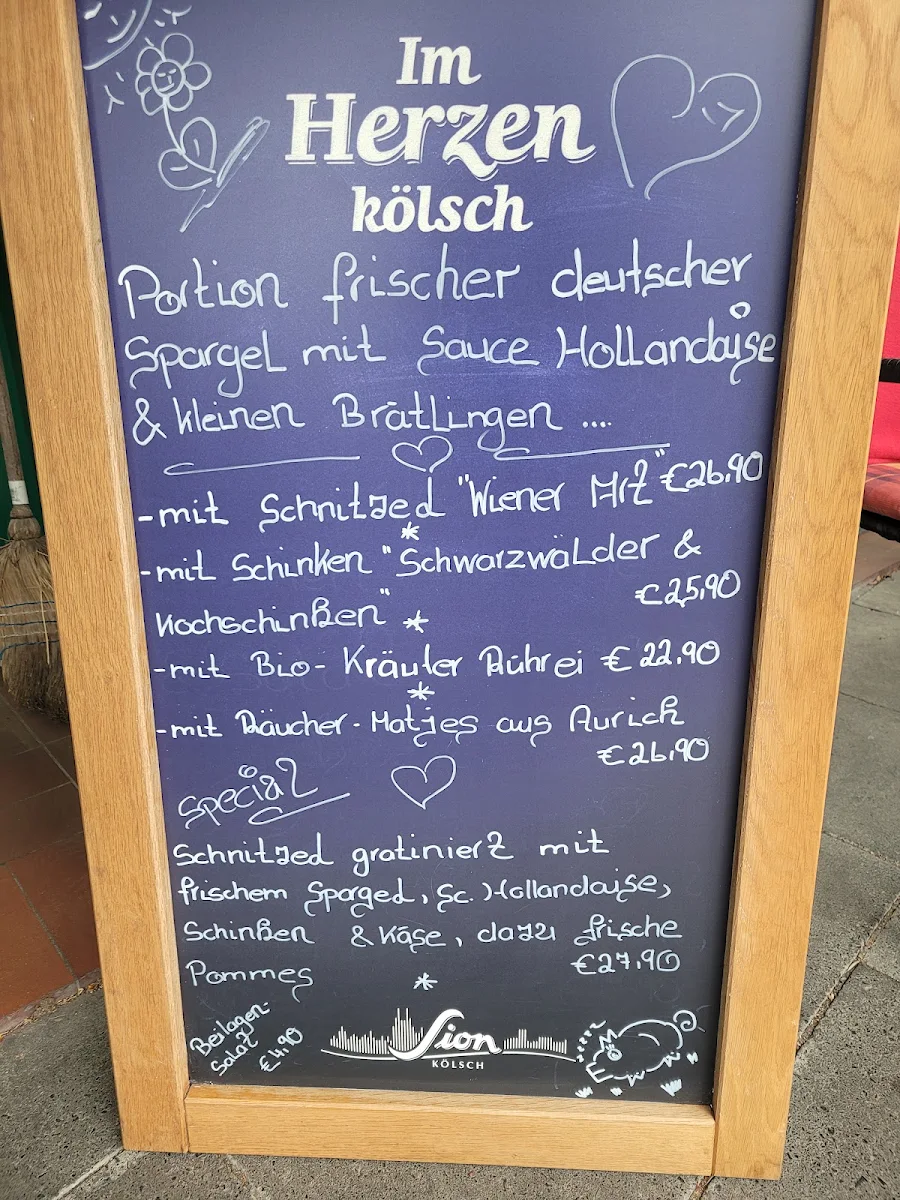 Im
Herzen
kölsch
Portion frischer deutscher
Spargel mit Sauce Hollandaise
& kleinen Brätlingen ....
-mit Schnitzel "Wiener Art" €26.90
*
-mit Schinken "Schwarzwälder &
€25,90
Kochschinken" *
-mit Bio-Kräuter Rührei €22.90
*
-mit Räucher-Matjes aus Aurich
€26.90
Special
Schnitzel gratiniert mit
frischem Spargel, Sc. Hollandaise,
Schinken & Käse, dazu frische
Pommes €27,90
*
Beilagen-
Salat
€4,90
Sion
KÖLSCH